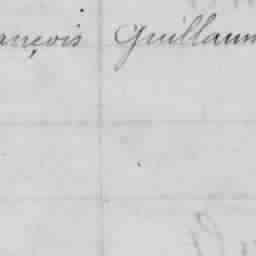 ançois Guillaum